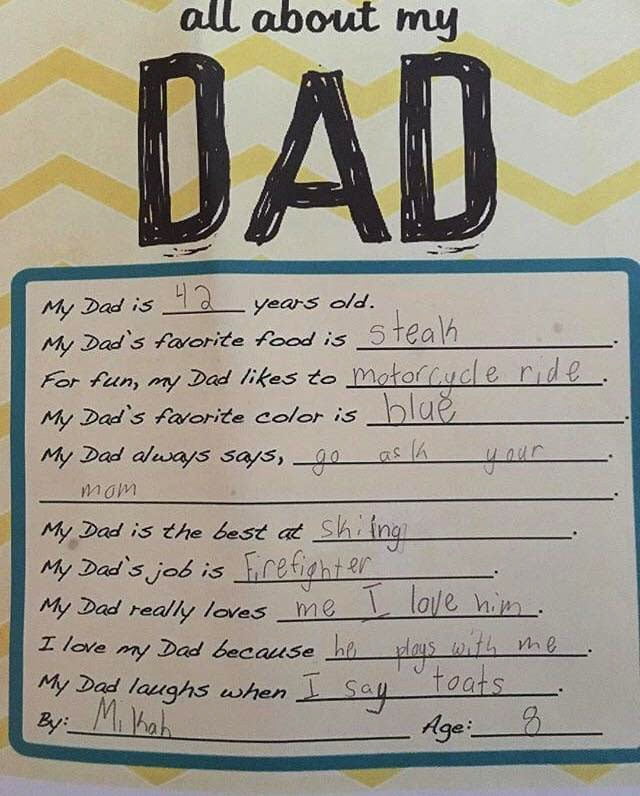 all about my
DAD
My Dad is 42 years old.
My Dad's favorite food is steak.
For fun, my Dad likes to motorcycle ride.
My Dad's favorite color is blue.
My Dad always says, go ask your.
mom.
My Dad is the best at skiing.
My Dad's job is Firefighter.
My Dad really loves me I love him.
I love my Dad because he plays with me.
My Dad laughs when I say toats.
By: Mikah Age: 8